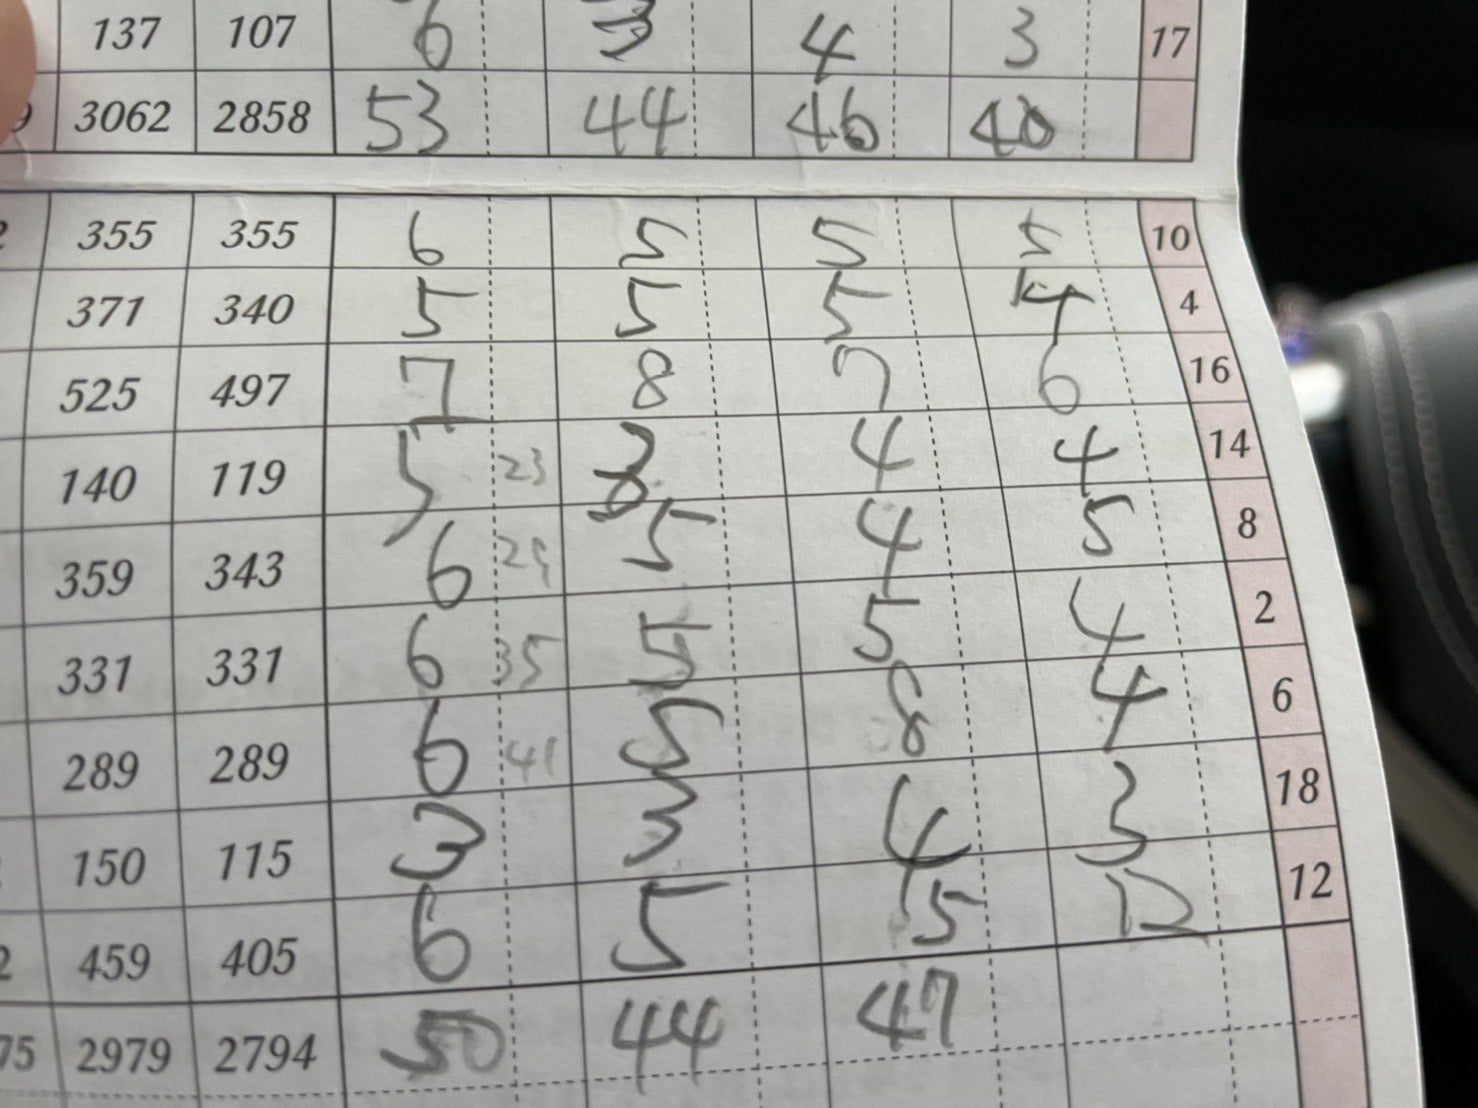 137 107 6 3 4 3 17
3062 2858 53 44 46 40
355 355 6 5 5 5 10
371 340 5 5 5 4 4
525 497 7 8 7 6 16
140 119 5 23 3 4 4 14
359 343 6 29 5 4 5 8
331 331 6 35 5 5 4 2
289 289 6 41 5 8 4 6
150 115 3 3 4 3 18
2 459 405 6 5 5 12 12
75 2979 2794 50 44 47